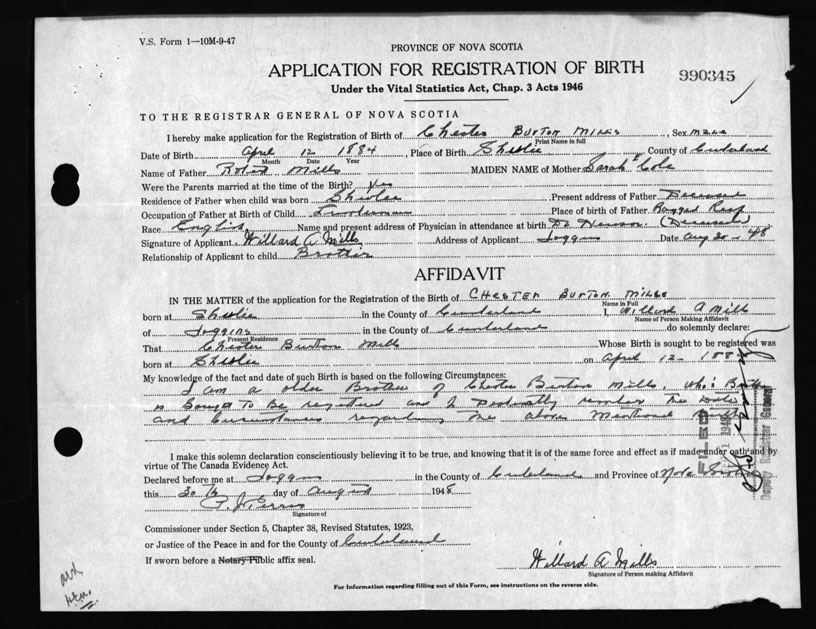 V.S. Form 1—10M-9-47
PROVINCE OF NOVA SCOTIA
APPLICATION FOR REGISTRATION OF BIRTH
990345
Under the Vital Statistics Act, Chap. 3 Acts 1946
TO THE REGISTRAR GENERAL OF NOVA SCOTIA
I hereby make application for the Registration of Birth of Chester Burton Mills, Sex Male
Print Name in full
Date of Birth April 12 1884, Place of Birth Shulie County of Cumberland
Month Date Year
Name of Father Robert Mills MAIDEN NAME of Mother Sarah E Cole
Were the Parents married at the time of the Birth? Yes
Residence of Father when child was born Shulie Present address of Father Deceased
Occupation of Father at Birth of Child Place of birth of Father Ragged Reef
Race English Name and present address of Physician in attendance at birth Dr (Deceased)
Signature of Applicant Willard A Mills Address of Applicant Joggins Date Aug 30 - 48
Relationship of Applicant to child Brother
AFFIDAVIT
IN THE MATTER of the application for the Registration of the Birth of CHESTER BURTON MILLS
Name in Full
born at Shulie in the County of Cumberland I, Willard A Mills
Name of Person Making Affidavit
of Joggins in the County of Cumberland do solemnly declare:
Present Residence
That Chester Burton Mills Whose Birth is sought to be registered was
born at Shulie on April 12 - 188
My knowledge of the fact and date of such Birth is based on the following Circumstances:
I am a older Brother of Chester Burton Mills, who's Birth
is Sought To Be registered and I Personally remember the Date
and Circumstances regarding the above Mentioned Birth
I make this solemn declaration conscientiously believing it to be true, and knowing that it is of the same force and effect as if made under oath and by
virtue of The Canada Evidence Act.
Declared before me at Joggins in the County of Cumberland and Province of Nova Scotia
this 30 th day of August 1948
Signature of
Commissioner under Section 5, Chapter 38, Revised Statutes, 1923,
or Justice of the Peace in and for the County of Cumberland
If sworn before a Notary Public affix seal.
Willard A Mills
Signature of Person making Affidavit
For Information regarding filling out of this Form, see instructions on the reverse side.
FILED
1948
Deputy Registrar General